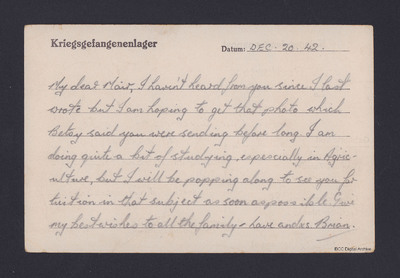 Kriegsgefangenenlager
Datum: DEC. 20. 42.
My dear Mair, I haven't heard from you since I last
wrote but I am hoping to get that photo which
Betsy said you were sending before long. I am
doing quite a bit of studying, especially in Agric-
ulture, but I will be popping along to see you for
tuition in that subject as soon as possible. Give
my best wishes to all the family - love Brian.
IBCC Digital Archive